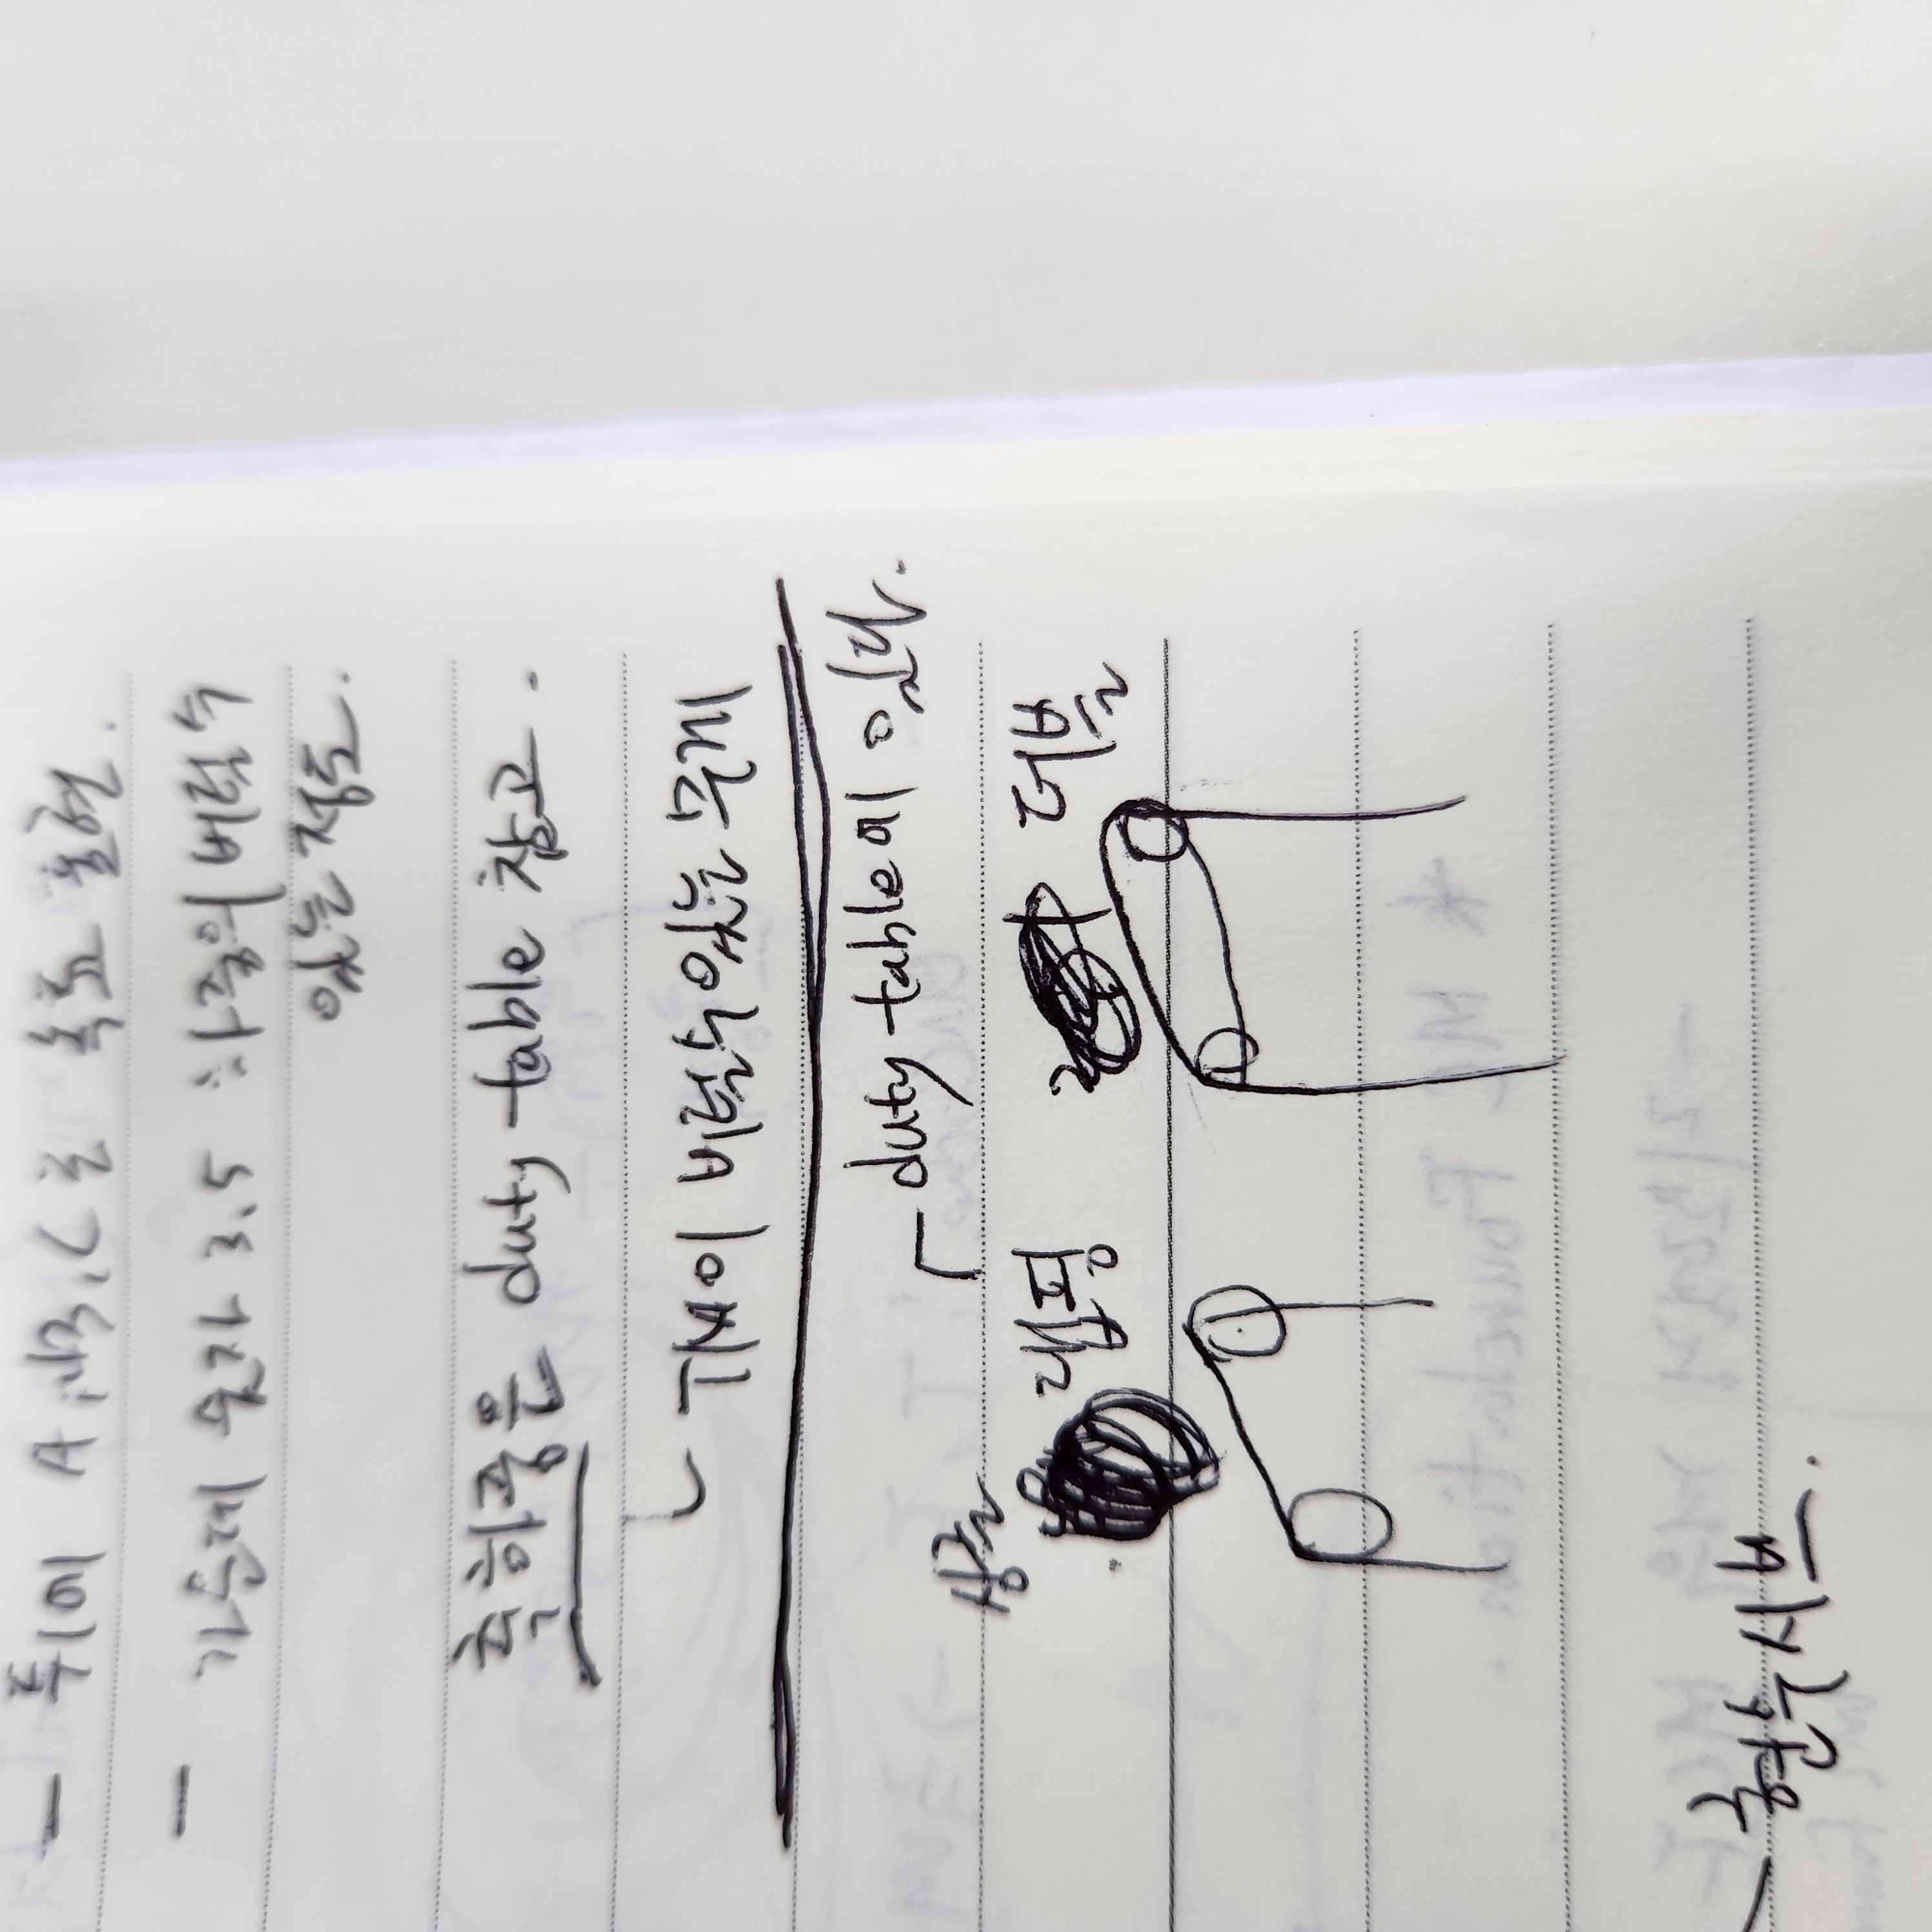 - 뒤에 A, B, C는 속도 표현.
- 가운데 숫자 3, 5 하중의 버틸수
있는 정도.
축하중은 duty table 참고.
TM이 버틸수있는 무게
duty table에 있다.
싱글 랩핑 더블
현수시브.